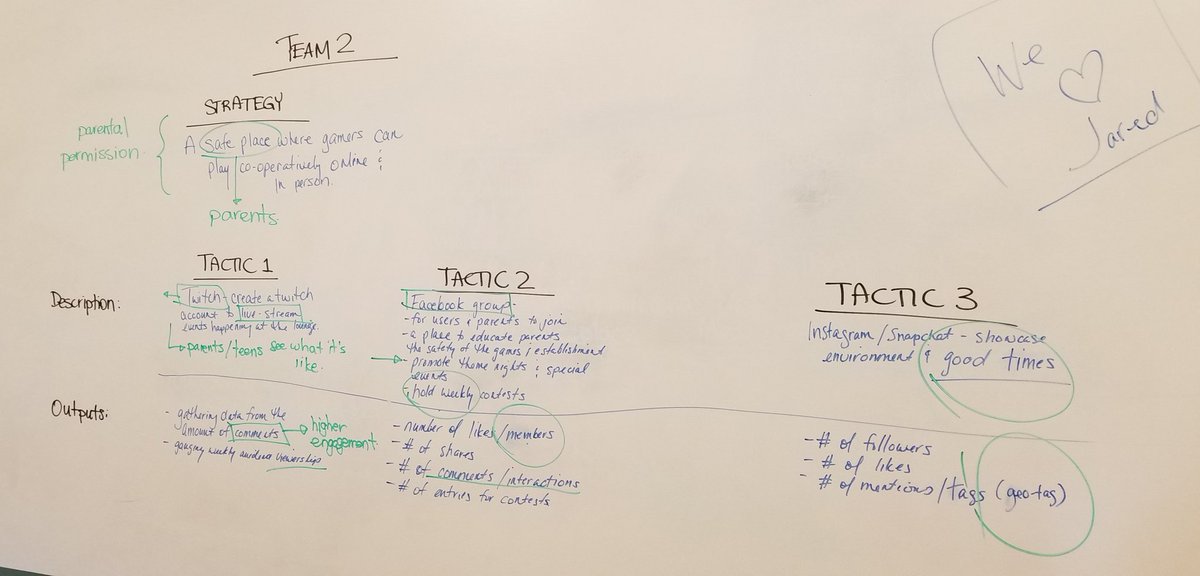 TEAM 2
We ♡
Jared
STRATEGY
parental
permission
A safe place where gamers can
play co-operatively online &
in person.
parents
TACTIC 1
Description:
Twitch - create a twitch
account to live-stream
events happening at the lounge.
parents/teens see what it's
like.
Outputs:
- gathering data from the
amount of comments
higher
engagement
- gauging weekly audience viewership
TACTIC 2
Facebook group -
- for users & parents to join
- a place to educate parents
the safety of the games & establishment
- promote theme nights & special
events
hold weekly contests
- number of likes/members
- # of shares
- # of comments/interactions
- # of entries for contests
TACTIC 3
Instagram/Snapchat - showcase
environment & good times
- # of followers
- # of likes
- # of mentions/tags (geo-tag)